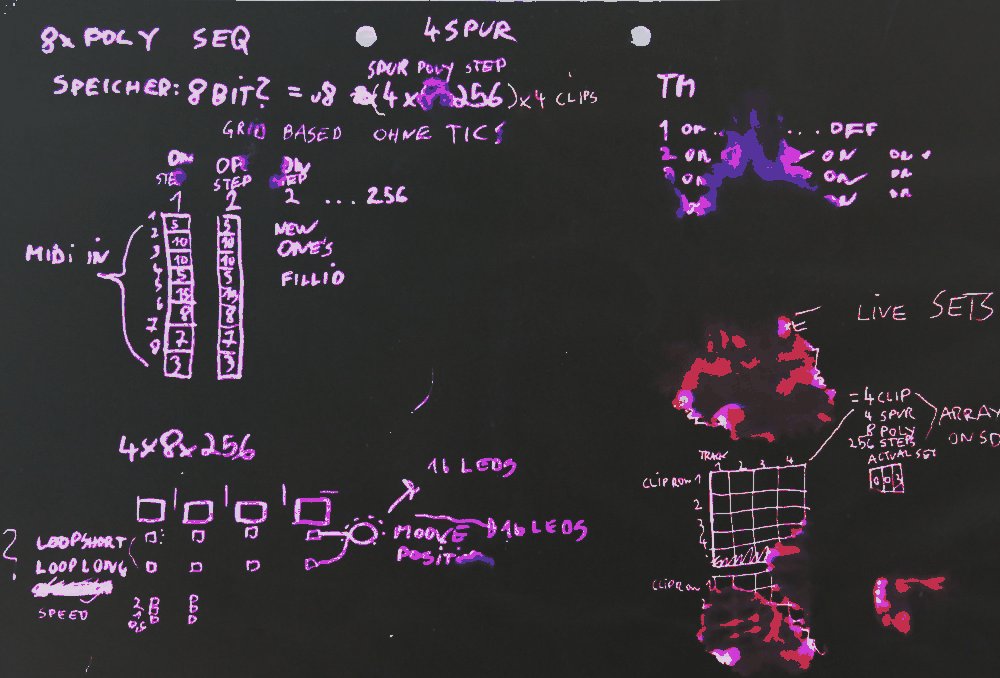 8x POLY SEQ
4 SPUR
SPUR POLY STEP
SPEICHER: 8 BIT? = (4x 256) x 4 CLIPS
GRID BASED OHNE TICS
STEP STEP
1 2 2 ... 256
MIDI IN
1 5 5 NEW
2 10 10 ONE'S
3 10 10 FILLIO
4 5 5
5 15 15
6 8 8
7 7 7
8 3 3
4x8x256
16 LEDS
MOOVE POSITION
16 LEDS
?
LOOP SHORT
LOOP LONG
SPEED
2
1
0,5
Th
1 ... OFF
2 ON ON
ON ON
LIVE SETS
= 4 CLIP
4 SPUR
8 POLY
256 STEPS
ARRAY
ON SD
ACTUAL SET
0 0 3
TRACK
1 2 3 4
CLIPROW 1
2
3
4
CLIPROW 1